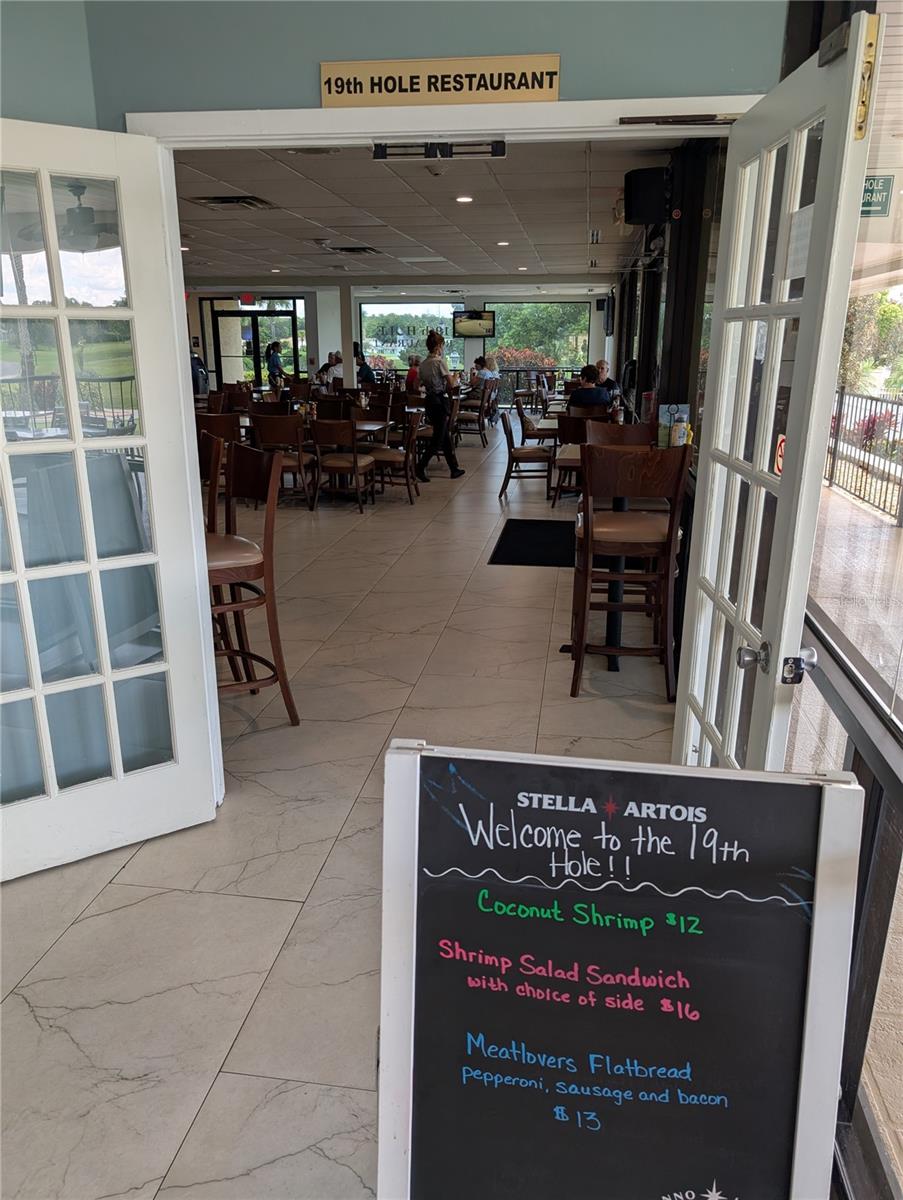 19th HOLE RESTAURANT
HOLE
19th HOLE
STELLA ARTOIS
Welcome to the 19th
Hole!!
Coconut Shrimp $12
Shrimp Salad Sandwich
with choice of side $16
Meatlovers Flatbread
pepperoni, sausage and bacon
$13